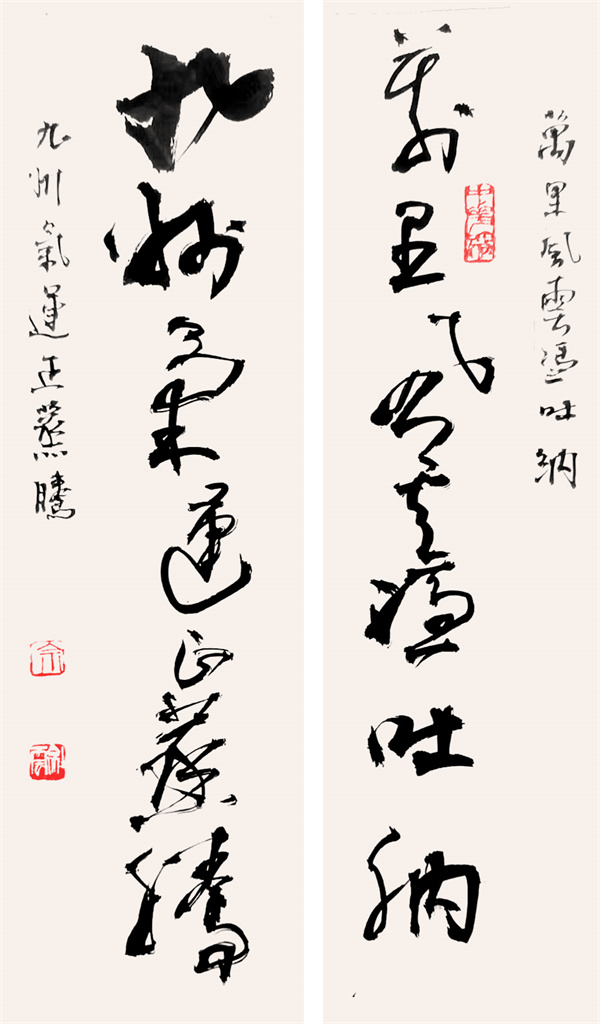 萬里風雲憑吐納
萬里風雲憑吐納
九州氣運正蒸騰
九州氣運正蒸騰